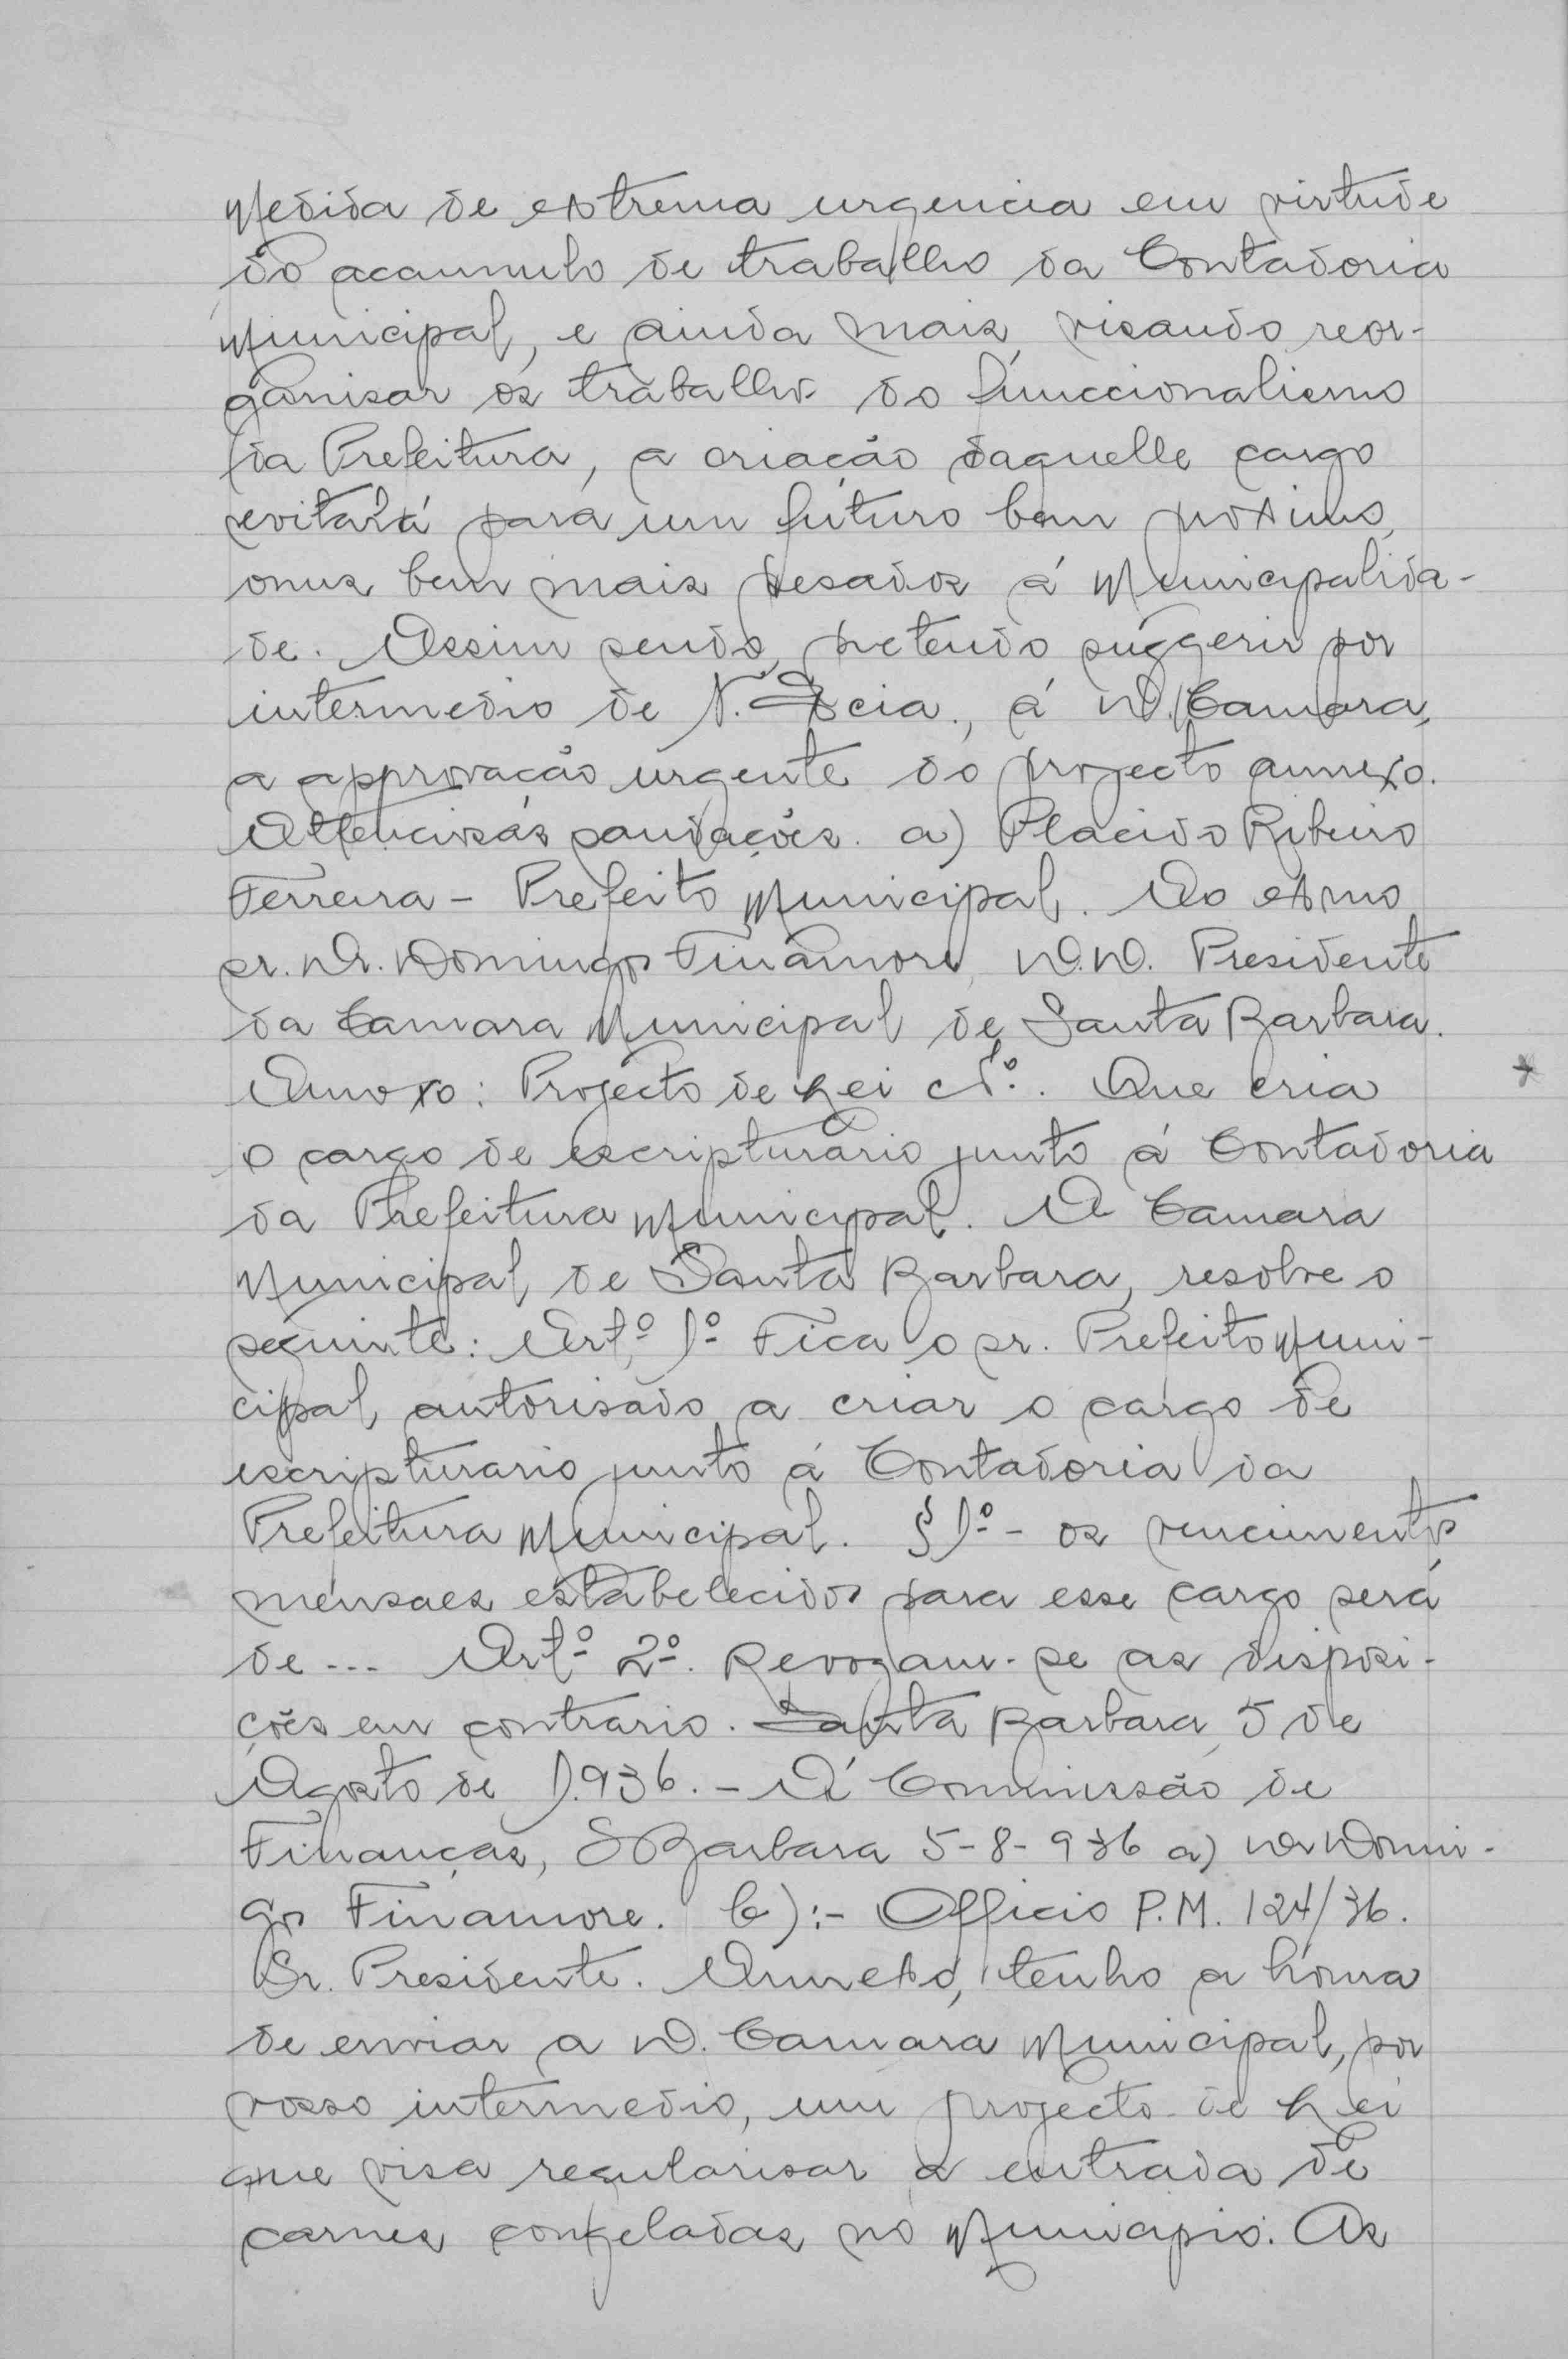 Medida de extrema urgencia em virtude
do accumulo de trabalho da Contadoria
Municipal, e ainda mais, visando reor-
ganisar os trabalhos do funccionalismo
da Prefeitura, a criação daquelle cargo
evitará para um futuro bem proximo,
onus bem mais pesados á Municipalida-
de. Assim sendo, pretendo suggerir por
intermedio de V. Excia., á D. Camara,
a approvação urgente do projecto annexo.
Attenciosas saudações. a) Placido Ribeiro
Ferreira - Prefeito Municipal. Ao exmo
sr. Dr. Domingos Finamore, D.D. Presidente
da Camara Municipal de Santa Barbara.
Annexo: Projecto de Lei Nº. Que cria
o cargo de escripturario junto á Contadoria
da Prefeitura Municipal. A Camara
Municipal de Santa Barbara, resolve o
seguinte: Artº 1º Fica o sr. Prefeito Muni-
cipal, autorisado a criar o cargo de
escripturario junto á Contadoria da
Prefeitura Municipal. § 1º - os vencimentos
mensaes estabelecidos para esse cargo será
de --- Artº 2º. Revogam-se as disposi-
ções em contrario. Santa Barbara, 5 de
Agosto de 1.936. - Á Commissão de
Finanças, S Barbara 5-8-936 a) Dr Domin-
gos Finamore. C):- Officio P.M. 124/36.
Sr. Presidente. Annexo, tenho a honra
de enviar a D. Camara Municipal, por
vosso intermedio, um projecto de Lei
que visa regularisar a entrada de
carnes congeladas no Municipio. As